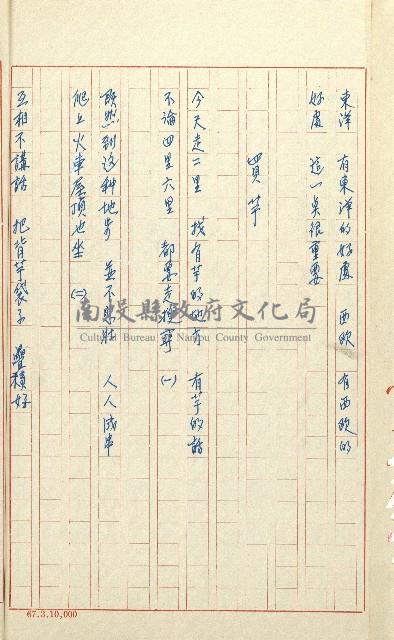 東洋 有東洋的好處 西欧 有西欧的
好處 這一点很重要
買芋
今天走二里 找有芋的地方 有芋的話
不論四里六里 都要走 (一)
既然到这种地步 並不 人人成串
爬上火車屋頂也坐 (二)
互相不講話 把背芋袋子 疊積好
南投縣政府文化局
Cultural Bureau of Nantou County Government
67.3.10,000